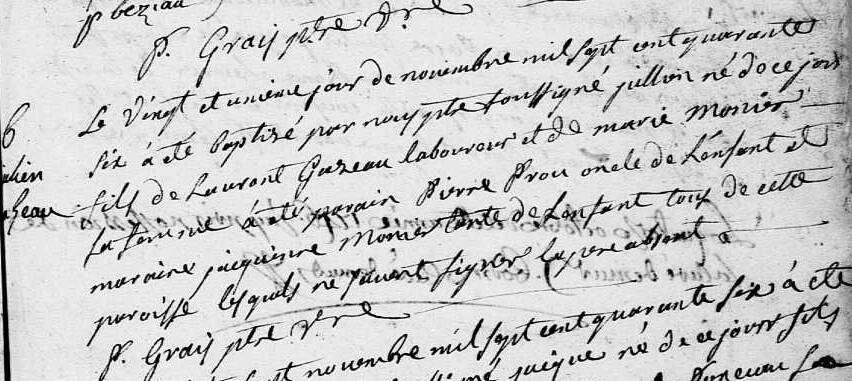 p bezian
P. Grais ptre Vre
Le vingt et unieme jour de novembre mil sept cent quarante
6 six à été baptizé par nous ptre soussigné jullien né de ce jour
ulien fils de Laurant Gazeau laboureur et de marie monier
azeau sa femme à été parain Pierre Prou oncle de Lenfant et
maraine jacquinne Monier tante de Lenfant tous de cette
paroisse lesquels ne savent signer le pere absent
P. Grais ptre Vre
sept novembre mil sept cent quarante six à été
jacque né de ce jour fils